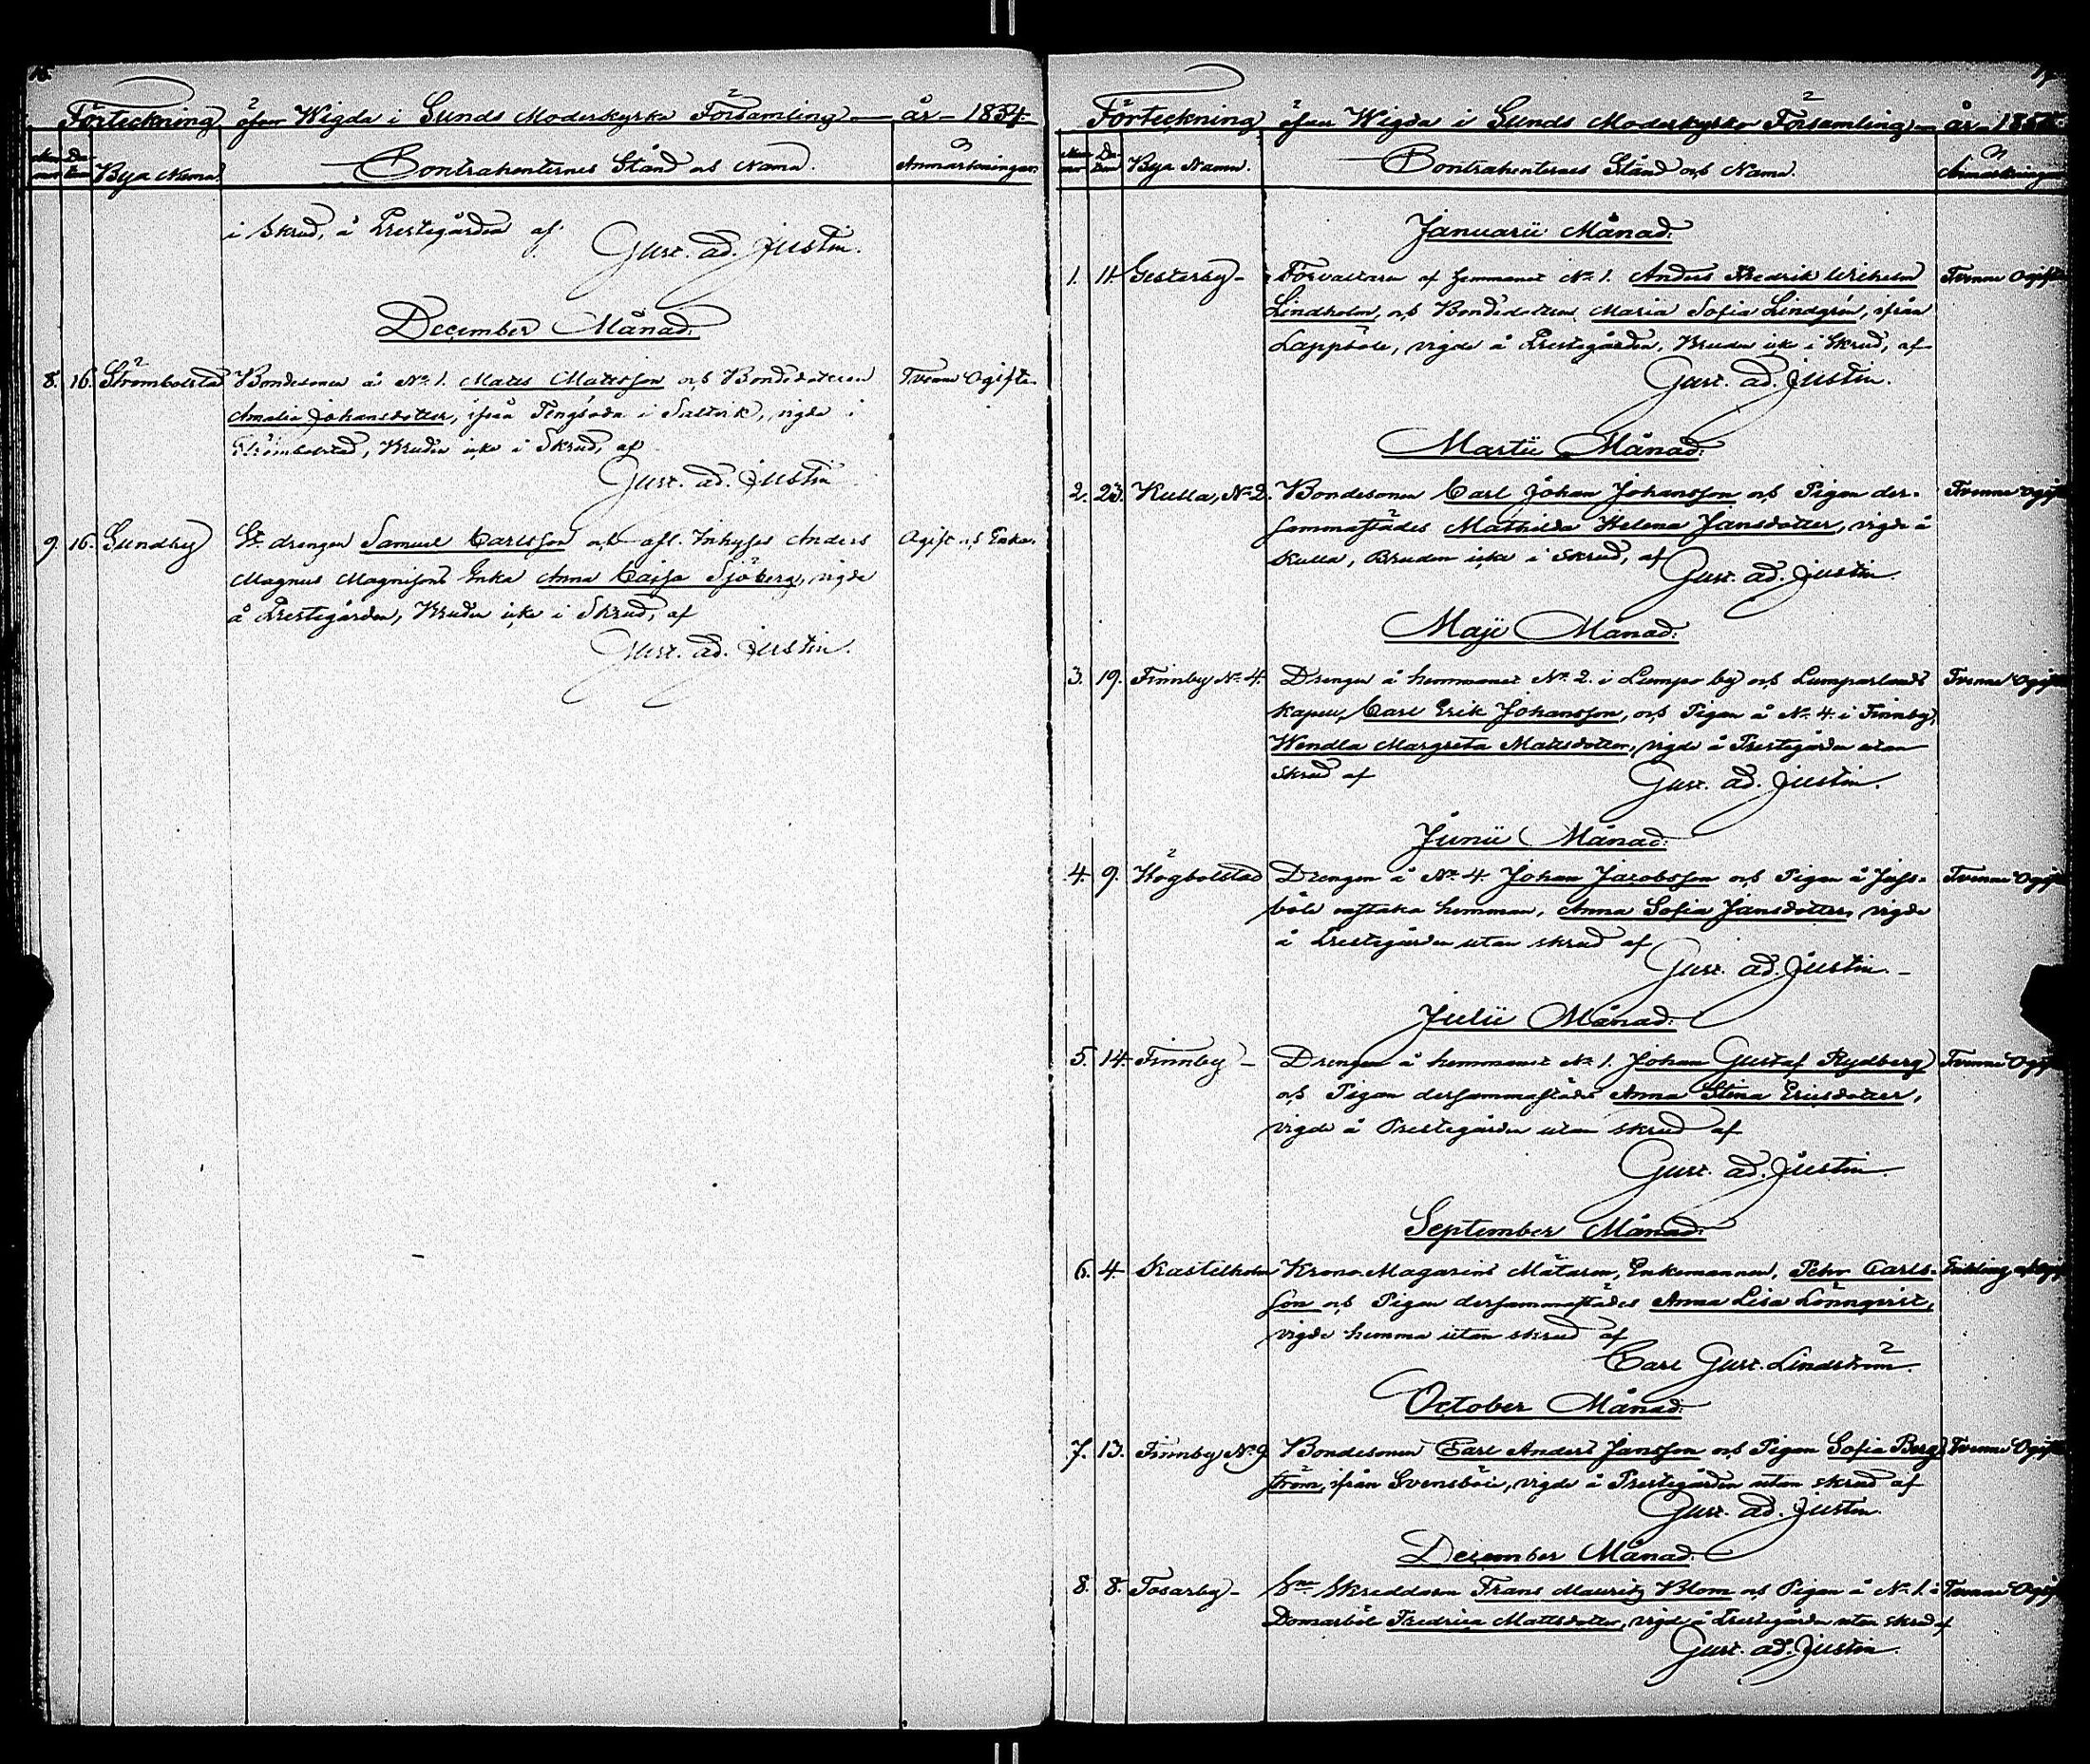 Förteckning öfver Wigda i Sunds Moderkyrko Församling år 1854.
Num- Da-
mer tum Bya Namn. Contrahenternes Stånd och Namn. Anmärkningar.
i Skrud, å Prestegården af
Gust. Ad. Justin.
December Månad.
8. 16. Strömbolstad Bondesonen å No 1. Matts Mattsson och Bondedottren Tvenne Ogifte.
Amalia Johansdotter, ifrån Tengsöda i Saltvik, vigde i
Strömbolstad, Bruden icke i Skrud, af
Gust. Ad. Justin
9. 16. Sundby St. drengen Samuel Carlsson och afl. Inhyses Anders Ogift och Enka.
Magnus Magnissons Enka Anna Cajsa Sjöberg, vigde
å Prestegården, Bruden icke i Skrud, af
Gust. Ad. Justin.
Förteckning öfver Wigda i Sunds Moderkyrko Församling år 1855.
Num- Da-
mer tum Bya Namn. Contrahenternes Stånd och Namn. Anmärkningar
Januarii Månad.
1. 11. Gesterby Förvaltaren af hemmanet No 1. Anders Fredrik Wilhelm Tvenne Ogifte
Lindholm, och Bondedottren Maria Sofia Lindgrén, ifrån
Lappböle, vigde å Prestegården, Bruden icke i Skrud, af
Gust. Ad. Justin.
Martii Månad.
2. 23. Kulla, No 2. Bondesonen Carl Johan Johansson och Pigan der- Tvenne Ogifte
sammastädes Mathilda Helena Jansdotter, vigde å
Kulla, Bruden icke i Skrud, af
Gust. Ad. Justin.
Maji Månad.
3. 19. Finnby No 4. Drengen å hemmanet No 2. i Lumpo by och Lumparlands Tvenne Ogifte
Kapell, Carl Erik Johansson, och Pigan å No 4. i Finnby,
Wendla Margreta Mattsdotter, vigde å Prestegården utan
Skrud af
Gust. Ad. Justin.
Junii Månad.
4. 9. Högbolstad Drengen å No 4. Johan Jacobsson och Pigan å Juss- Tvenne Ogifte
böle enstaka hemman, Anna Sofia Jansdotter, vigde
å Prestegården utan skrud af
Gust. Ad. Justin.
Julii Månad.
5. 14. Finnby Drengen å hemmanet No 1. Johan Gustaf Rydberg Tvenne Ogifte
och Pigan dersammastädes Anna Stina Ericsdotter,
vigde å Prestegården utan skrud af
Gust. Ad. Justin.
September Månad.
6. 4. Kastelholm Krono-Magasins Mätaren, Enkemannen, Pehr Carls- Enkling och Ogift
son och Pigan dersammastädes Anna Lisa Lönnqvist,
vigde hemma utan skrud af
Carl Gust. Lindström.
October Månad.
7. 13. Finnby No 9 Bondesonen Carl Anders Jansson och Pigan Sofia Berg- Tvenne Ogifte
ström, ifrån Svensböle, vigde å Prestegården utan skrud af
Gust. Ad. Justin.
December Månad.
8. 8. Tosarby Skreddaren Frans Mauritz Blom och Pigan å No 1. i Tvenne Ogifte
Domarböle Fredrica Mattsdotter, vigde å Prestegården utan skrud af
Gust. Ad. Justin.